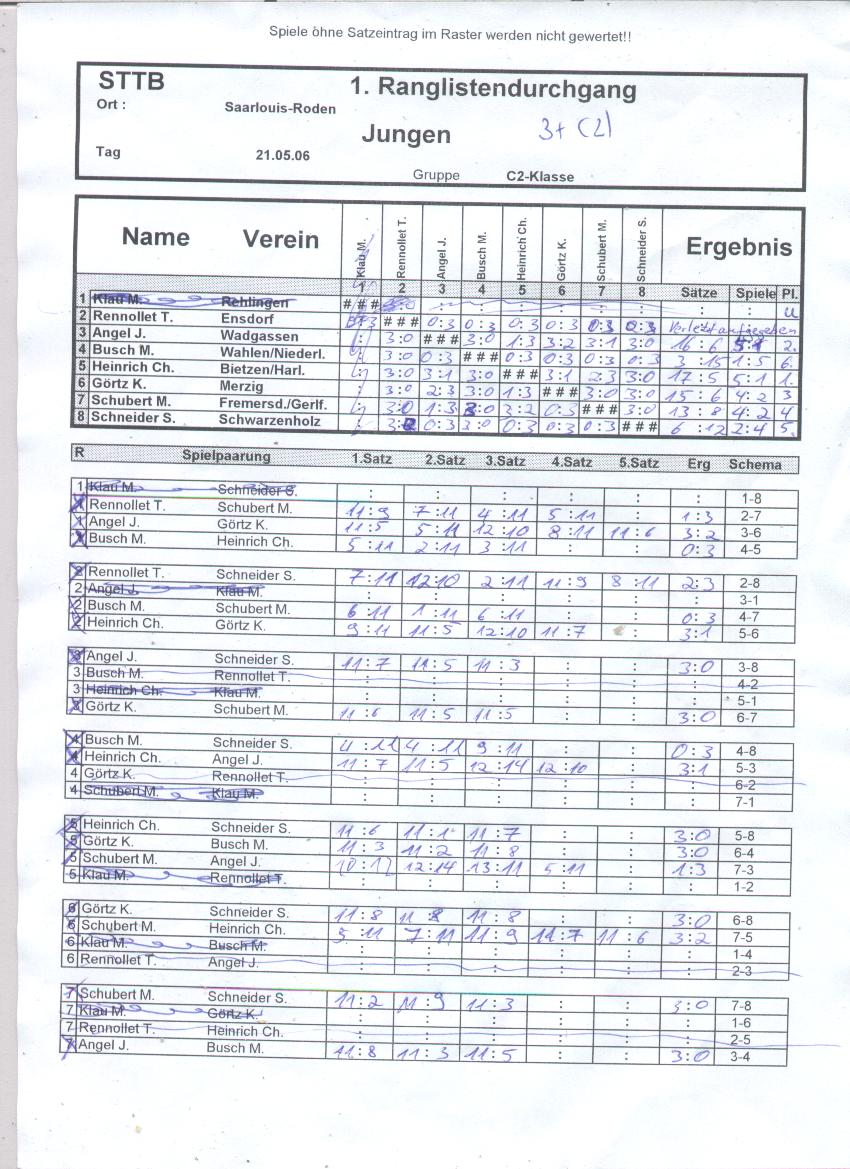 Spiele ohne Satzeintrag im Raster werden nicht gewertet!!
STTB 1. Ranglistendurchgang
Ort : Saarlouis-Roden
Jungen 3+ (2)
Tag 21.05.06
Gruppe C2-Klasse
Name Verein Klau M. Rennollet T. Angel J. Busch M. Heinrich Ch. Görtz K. Schubert M. Schneider S. Ergebnis
1 2 3 4 5 6 7 8 Sätze Spiele Pl.
1 Klau M. Rehlingen ###
2 Rennollet T. Ensdorf ### 0:3 0:3 0:3 0:3 0:3 0:3 Verletzt aufgegeben
3 Angel J. Wadgassen 3:0 ### 3:0 1:3 3:2 3:1 3:0 16:6 5:1 2.
4 Busch M. Wahlen/Niederl. 3:0 0:3 ### 0:3 0:3 0:3 0:3 3:15 1:5 6.
5 Heinrich Ch. Bietzen/Harl. 3:0 3:1 3:0 ### 3:1 2:3 3:0 17:5 5:1 1.
6 Görtz K. Merzig 3:0 2:3 3:0 1:3 ### 3:0 3:0 15:6 4:2 3
7 Schubert M. Fremersd./Gerlf. 3:0 1:3 3:0 3:2 0:3 ### 3:0 13:8 4:2 4
8 Schneider S. Schwarzenholz 3:0 0:3 3:0 0:3 0:3 0:3 ### 6:12 2:4 5.
R Spielpaarung 1.Satz 2.Satz 3.Satz 4.Satz 5.Satz Erg Schema
1 Klau M. Schneider S. : : : : : : 1-8
1 Rennollet T. Schubert M. 11:9 7:11 4:11 5:11 : 1:3 2-7
1 Angel J. Görtz K. 11:5 5:11 12:10 8:11 11:6 3:2 3-6
1 Busch M. Heinrich Ch. 5:11 2:11 3:11 : : 0:3 4-5
2 Rennollet T. Schneider S. 7:11 12:10 2:11 11:9 8:11 2:3 2-8
2 Angel J. Klau M. : : : : : : 3-1
2 Busch M. Schubert M. 6:11 1:11 6:11 : : 0:3 4-7
2 Heinrich Ch. Görtz K. 9:11 11:5 12:10 11:7 : 3:1 5-6
3 Angel J. Schneider S. 11:7 11:5 11:3 : : 3:0 3-8
3 Busch M. Rennollet T. : : : : : : 4-2
3 Heinrich Ch. Klau M. : : : : : : 5-1
3 Görtz K. Schubert M. 11:6 11:5 11:5 : : 3:0 6-7
4 Busch M. Schneider S. 4:11 4:11 9:11 : : 0:3 4-8
4 Heinrich Ch. Angel J. 11:7 11:5 12:14 12:10 : 3:1 5-3
4 Görtz K. Rennollet T. : : : : : : 6-2
4 Schubert M. Klau M. : : : : : : 7-1
5 Heinrich Ch. Schneider S. 11:6 11:1 11:7 : : 3:0 5-8
5 Görtz K. Busch M. 11:3 11:2 11:8 : : 3:0 6-4
5 Schubert M. Angel J. 10:12 12:14 13:11 5:11 : 1:3 7-3
5 Klau M. Rennollet T. : : : : : : 1-2
6 Görtz K. Schneider S. 11:8 11:8 11:8 : : 3:0 6-8
6 Schubert M. Heinrich Ch. 5:11 7:11 11:9 11:7 11:6 3:2 7-5
6 Klau M. Busch M. : : : : : : 1-4
6 Rennollet T. Angel J. : : : : : : 2-3
7 Schubert M. Schneider S. 11:2 11:9 11:3 : : 3:0 7-8
7 Klau M. Görtz K. : : : : : : 1-6
7 Rennollet T. Heinrich Ch. : : : : : : 2-5
7 Angel J. Busch M. 11:8 11:3 11:5 : : 3:0 3-4